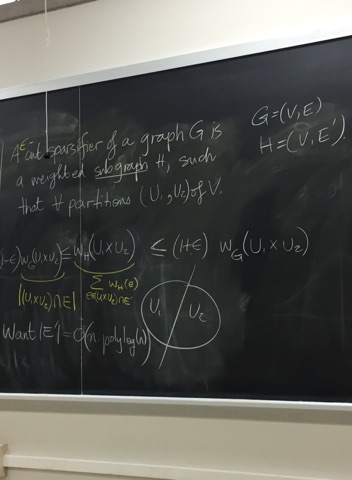 A ε-cut sparsifier of a graph G is
a weighted subgraph H, such
that ∀ partitions (U₁,U₂) of V.
G=(V,E)
H=(V,E').
(1-ε)w_G(U₁×U₂) ≤ w_H(U₁×U₂) ≤ (1+ε) w_G(U₁×U₂)
|(U₁×U₂)∩E|
∑ w_H(e)
e∈(U₁×U₂)∩E'
U₁ U₂
Want |E'|=O(n·polylog(n))